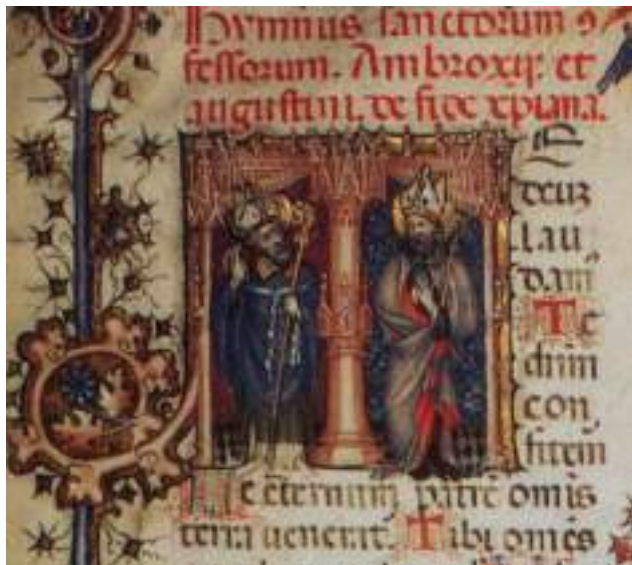 Hymnus sanctorum ɔ
fessorum. Ambroxij. et
augustini. de fide xpiana.
E
deuʒ
lau
dam̄
Te
dnm
con
fitem̄
Te et̄ernum patrē omīs
terra uenerat̄. Tibi omēs